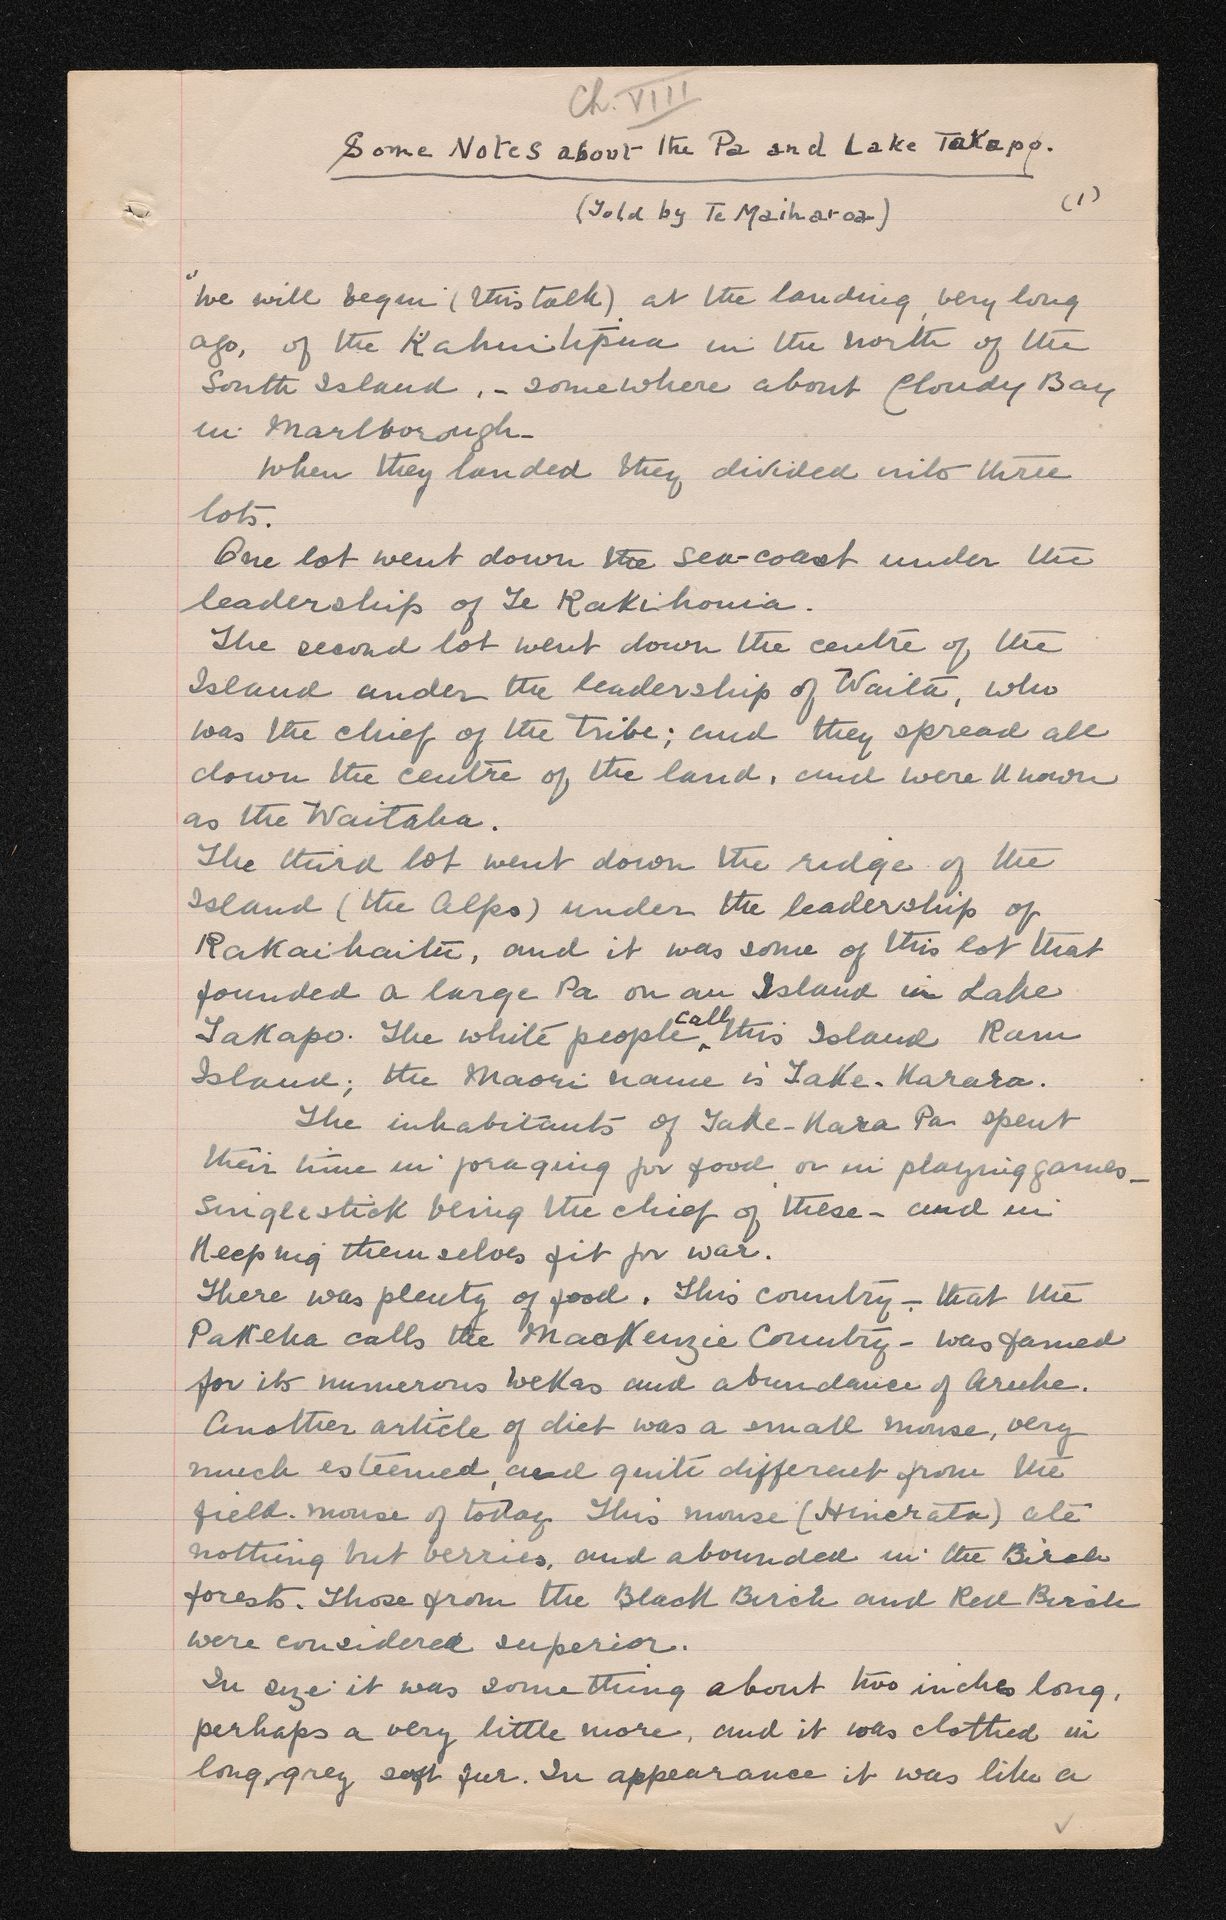 Ch. VIII
Some Notes about the Pa and Lake Takapo.
(Told by Te Maiharoa)
(1)
"We will begin (this talk) at the landing, very long
ago, of the Kahui tipua in the north of the
South Island, - somewhere about Cloudy Bay
in Marlborough -
When they landed they divided into three
lots.
One lot went down the sea-coast under the
leadership of Te Rakihouia.
The second lot went down the centre of the
Island under the leadership of Waitā, who
was the chief of the tribe; and they spread all
down the centre of the land, and were known
as the Waitaha.
The third lot went down the ridge of the
Island (the Alps) under the leadership of
Rakaihaitū, and it was some of this lot that
founded a large Pa on an Island in Lake
Takapo. The white people call this Island Ram
Island; the Maori name is Take-Karara.
The inhabitants of Take-Kara Pa spent
their time in foraging for food, or in playing games -
Singlestick being the chief of these - and in
Keeping themselves fit for war.
There was plenty of food. This country - that the
Pakeha calls the MacKenzie Country - was famed
for its numerous wekas and abundance of Aruhe.
Another article of diet was a small mouse, very
much esteemed, and quite different from the
field-mouse of today. This mouse (Hinerata) ate
nothing but berries, and abounded in the Birch
forests. Those from the Black Birch and Red Birch
were considered superior.
In size it was something about two inches long,
perhaps a very little more, and it was clothed in
long, grey soft fur. In appearance it was like a